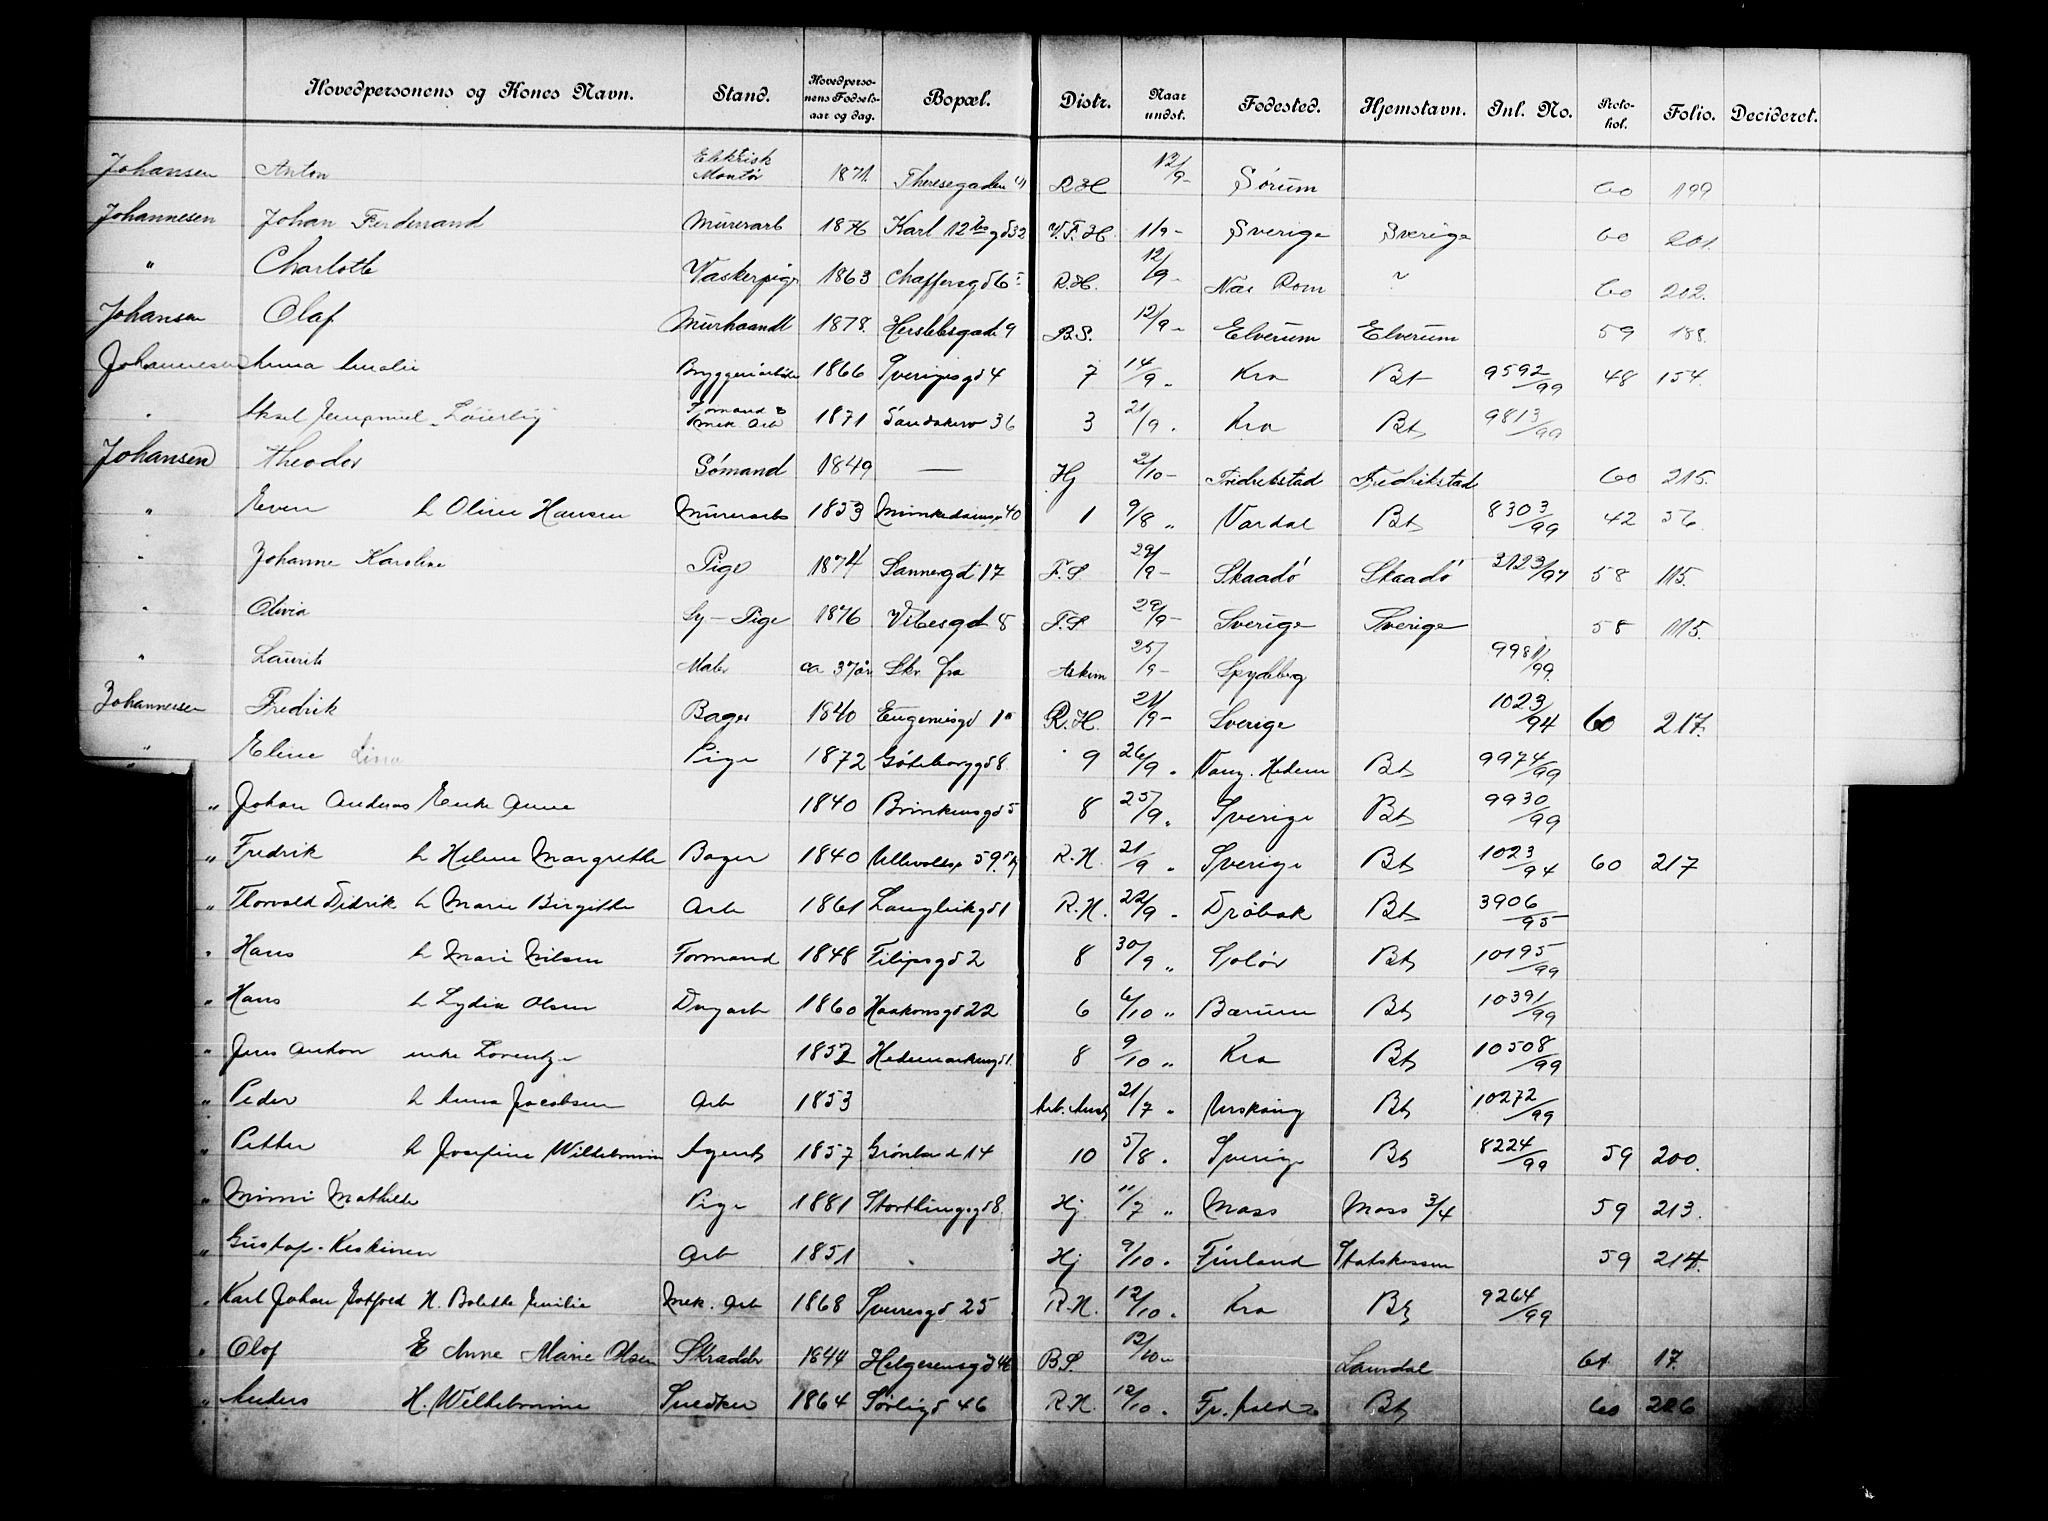 Hovedpersonens og Kones Navn. Stand. Hovedpersonens Fødselsaar og dag. Bopæl. Distr. Naar undst. Fødested. Hjemstavn. Inl. No. Protokol. Folio. Decideret.
Johansen Anton Elektrisk Montør 1871. Theresegaden R.H. 12/9- Sørum 60 199
Johannesen Johan Ferdenand Murerarb 1876 Karl 12tes gd 32 V.F.H. 11/9- Sverige Sverige 60 201.
" Charlotte Vaskerpige 1863 R.H. 12/9- 60 212.
Johansen Olaf Murhaandt 1878. Herslebsgade 9 B.S. 12/9- Elverum Elverum 59 188.
Johannesen Anna Amalie Bryggeriarbeider 1866 Sverigesgd 4 7 14/9 " Kra Bt 9592/99 48 154.
" Aksel Formand & mek. Arb 1871 Sandakerv 36 3 21/9 " Kra Bt 9813/99
Johansen Theodor Sömand 1849 — Hj 2/10- Fredrikstad Fredrikstad 60 215.
" Even h Oline Hansen Murerarb 1853 Munkedamsv 40 1 9/8 " Vardal Bt 8303/99 42 56.
" Johanne Karoline Pige 1874 Sannergd 17 F.S 29/9- Skaadö Skaadö 3123/97 58 115.
" Olivia Sy-Pige 1876 Vibesgd 8 F.S 29/9- Sverige Sverige 58 115.
" Laurits Maler ca 37 år Skr. fra Askim 25/9- Spydeberg 9981/99.
Johannesen Fredrik Bager 1840 Eugeniesgd 1 R.H. 21/9- Sverige 1023/94 60 217.
" Eline Lina Pige 1872 Göteborggd 8 9 26/9 " Vang. Hedem Bt 9974/99
" Johan Andreas Enke Anne 1840 Brinkensgd 5 8 25/9 " Sverige Bt 9930/99
" Fredrik h Helene Margrethe Bager 1840 Ullevoldsv 59 R.H. 21/9 " Sverige Bt 1023/94 60 217
" Thorvald Didrik h Marie Birgitte Arb 1861 Langleikgd 1 R.H. 22/9 - Dröbak Bt 3906/95
" Hans h Mari Nilsen Formand 1848 Filipsgd 2 8 30/9 " Solör Bt 10195/99
" Hans h Lydia Olsen Dagarb 1860 Haakonsgd 22 6 6/10 " Bærum Bt 10391/99
" Jens Anton enke Lorentze 1852 Hedemarkengd 1. 8 9/10 " Kra Bt 10508/99
" Peder h Anna Jacobsen Arb 1853 Arb. Anst 21/7 " Urskoug Bt 10272/99
" Petter h Josefine Wilhelmine Agent 1857 Grönland 14 10 5/8 . Sverige Bt 8224/99 59 200.
" Mimi Mathilde Pige 1881 Storthingsgd 8 Hj 11/7 " Moss Moss 3/4 59 213.
" Gustaf Keskinen Arb 1851 Hj 9/10 . Finland Statskassen 59 214.
" Karl Johan Gotfred H. Bolette Emilie Mek. Arb 1868 Sverresgd 25 R.H. 12/10 . Kra Bt 9264/99
" Olof E Anne Marie Olsen Skrædder 1844 Helgesensgd B.S. 12/10 " Laurdal 61. 17.
" Anders H. Wilhelmine Snedker 1864 Sörligd 46 R.H. 12/10 . Fr. hald Bt 60 226